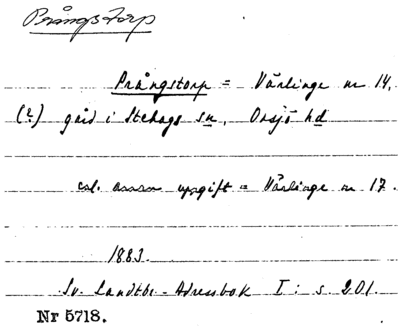 Prångstorp
Prångstorp = Värlinge nr 14.
(2) gård i Stehags sn, Onsjö hd
enl. annan uppgift = Värlinge nr 17.
1883.
Sv. Landtbr.-Adressbok I: s 201.
Nr 5718.